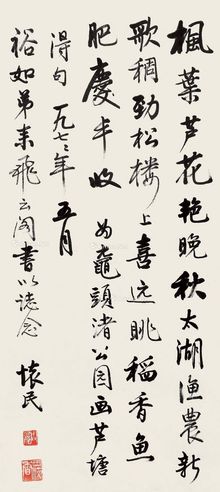 楓葉芦花艳晚秋太湖渔農新
歌稠劲松楼上喜远眺稻香鱼
肥慶丰收 为鼋頭渚公园画芦塘
得句 一九七二年五月
裕如弟来飛云阁书以誌念 怀民